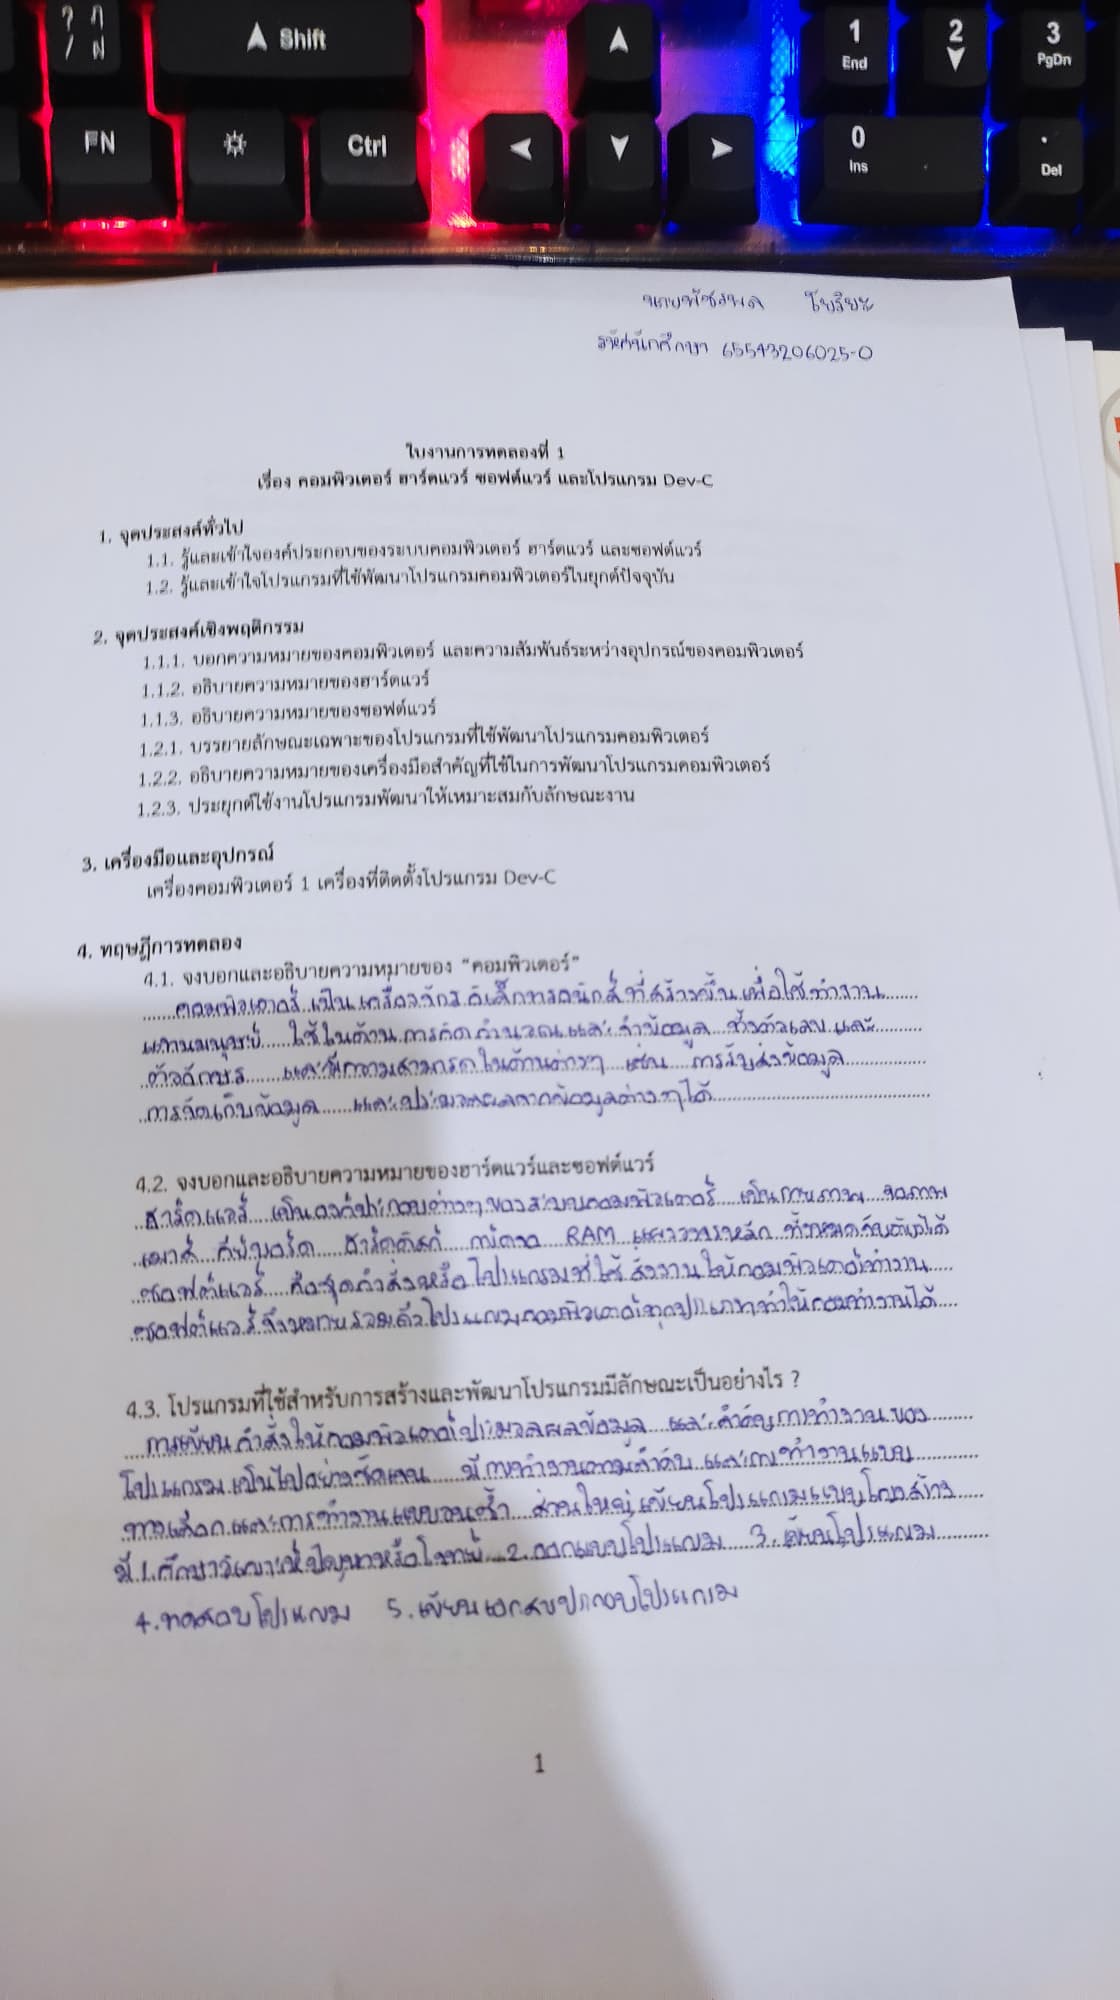 ? ฦ
/ ฝ
Shift
1
End
2
3
PgDn
FN
Ctrl
0
Ins
.
Del
นายพัชรพล โยริยะ
รหัสนักศึกษา 65543206025-0
ใบงานการทดลองที่ 1
เรื่อง คอมพิวเตอร์ ฮาร์ดแวร์ ซอฟต์แวร์ และโปรแกรม Dev-C
1. จุดประสงค์ทั่วไป
1.1. รู้และเข้าใจองค์ประกอบของระบบคอมพิวเตอร์ ฮาร์ดแวร์ และซอฟต์แวร์
1.2. รู้และเข้าใจโปรแกรมที่ใช้พัฒนาโปรแกรมคอมพิวเตอร์ในยุกต์ปัจจุบัน
2. จุดประสงค์เชิงพฤติกรรม
1.1.1. บอกความหมายของคอมพิวเตอร์ และความสัมพันธ์ระหว่างอุปกรณ์ของคอมพิวเตอร์
1.1.2. อธิบายความหมายของฮาร์ดแวร์
1.1.3. อธิบายความหมายของซอฟต์แวร์
1.2.1. บรรยายลักษณะเฉพาะของโปรแกรมที่ใช้พัฒนาโปรแกรมคอมพิวเตอร์
1.2.2. อธิบายความหมายของเครื่องมือสำคัญที่ใช้ในการพัฒนาโปรแกรมคอมพิวเตอร์
1.2.3. ประยุกต์ใช้งานโปรแกรมพัฒนาให้เหมาะสมกับลักษณะงาน
3. เครื่องมือและอุปกรณ์
เครื่องคอมพิวเตอร์ 1 เครื่องที่ติดตั้งโปรแกรม Dev-C
4. ทฤษฎีการทดลอง
4.1. จงบอกและอธิบายความหมายของ "คอมพิวเตอร์"
คอมพิวเตอร์ เป็นเครื่องจักรอิเล็กทรอนิกส์ที่สร้างขึ้นเพื่อใช้ทำงาน
แทนมนุษย์ ใช้ในด้านการคิดคำนวณและจำข้อมูล ทั้งตัวเลขและ
ตัวอักษร และมีความสามารถในด้านต่างๆ เช่น การรับส่งข้อมูล
การจัดเก็บข้อมูล และประมวลผลจากข้อมูลต่างๆได้
4.2. จงบอกและอธิบายความหมายของฮาร์ดแวร์และซอฟต์แวร์
ฮาร์ดแวร์ เป็นองค์ประกอบต่างๆของระบบคอมพิวเตอร์ เป็นกายภาพ จอภาพ
เมาส์ คีย์บอร์ด ฮาร์ดดิสก์ การ์ดจอ RAM แผงวงจรหลัก ทั้งหมดจับต้องได้
ซอฟต์แวร์ คือชุดคำสั่งหรือโปรแกรมที่ใช้สั่งงานให้คอมพิวเตอร์ทำงาน
ซอฟต์แวร์จึงหมายรวมถึงโปรแกรมคอมพิวเตอร์ทุกประเภทที่ทำให้คอมทำงานได้
4.3. โปรแกรมที่ใช้สำหรับการสร้างและพัฒนาโปรแกรมมีลักษณะเป็นอย่างไร ?
การเขียนคำสั่งให้คอมพิวเตอร์ประมวลผลข้อมูล และลำดับการทำงานของ
โปรแกรมเป็นไปอย่างชัดเจน มีการทำงานตามลำดับ และการทำงานแบบ
ทางเลือกและการทำงานแบบวนซ้ำ ส่วนใหญ่เขียนโปรแกรมแบบโครงสร้าง
มี 1.ศึกษาวิเคราะห์ปัญหาหรือโจทย์ 2.ออกแบบโปรแกรม 3.เขียนโปรแกรม
4.ทดสอบโปรแกรม 5.เขียนเอกสารประกอบโปรแกรม
1